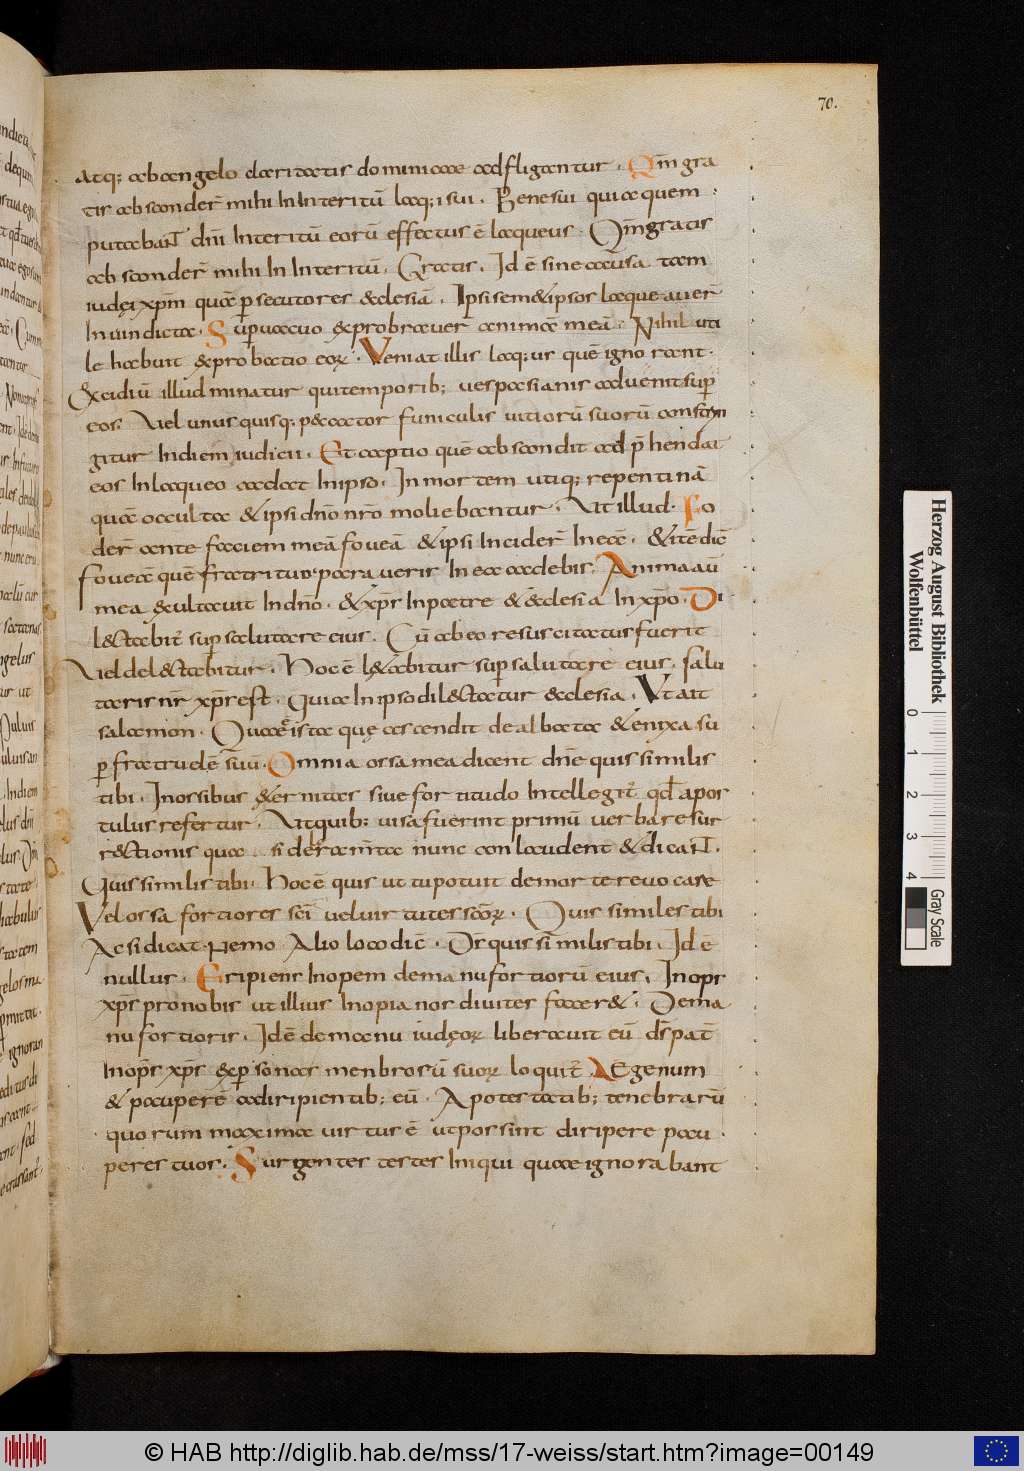 70.
atq; ab angelo claritatis dominicae adfligantur. Qm̄ gra
tis absconder̄ mihi in interitū laq;i sui. Bene sui quia quem
putabant dn̄i interitū eorū effectus ē laqueus. Qm̄ gratis
absconder̄ mihi in interitū. Gratis. Id ē sine causa tam
iudęi xp̄m quā p̄secutores &clesiā. Ipsi sem& ipsos laqueauer̄
In uindicta. Supuacuo exprobrauer animā meā. Nihil uti
le habuit exprobatio eoꝝ. Veniat illis laq;us quē ignorant.
Excidiū illud minatur qui temporib; uespasianis aduenit sup
eos. Vel unusquisq; peccator funiculis uitiorū suorū constrin
gitur In diem iudicii. Et captio quē abscondit adp̄hendat
eos In laqueo cadat In ipso. In mortem utiq; repentinā
quā occultae & ipsi dn̄o nr̄o moliebantur. Ut illud. Fo
der̄ ante faciem meā foueā & ipsi Incider̄ In eā. & itē dic̄
foueā quē fratri tuo paraueris In eā cadebis. Anima aū
mea exultauit In dn̄o. & xp̄s In patre & &clesia In xp̄o. Di
l&tabit̄ sup salutare eius. Cū ab eo resuscitatus fuerit
Vel del&tabitur. Hoc ē l&abitur sup salutare eius. salu
taris nr̄ xp̄s est. Quia In ipso dil&tatur &clesia. Ut ait
salamon. Quae ista quę ascendit dealbata & enixa su
p fratrudē suū. Omnia ossa mea dicent dn̄e quis similis
tibi. In ossibus &ernitas siue fortitudo Intellegit̄ qd̄ apos
tulus refertur. Ut quib; uisa fuerint primū uerba resur
r&tionis quasi deleramēta nunc conlaudent & dicant.
Quis similis tibi. Hoc ē quis ut tu potuit de morte reuocare
Vel ossa fortiores sc̄i uel uirtutes sc̄oꝝ. Quis similes tibi
Ac si dicat Nemo Alio loco dic̄. Ds̄ quis similis tibi. Id ē
nullus. Eripiens Inopem de manu fortiorū eius. Inops
xp̄s pro nobis ut illius Inopia nos diuites facer&. De ma
nu fortioris. Id ē de manu iudęoꝝ liberauit eū ds̄ pat̄
Inop̄s xp̄s ex psona menbrorū suoꝝ loquit̄. Aegenum
& paupere ā diripientib; eū. A potestatib; tenebrarū
quorum maxima uirtus ē ut possint diripere pau
peres tuos. Surgentes testes Iniqui quae ignorabant
Herzog August Bibliothek
Wolfenbüttel
0 1 2 3 4
Gray Scale
© HAB http://diglib.hab.de/mss/17-weiss/start.htm?image=00149